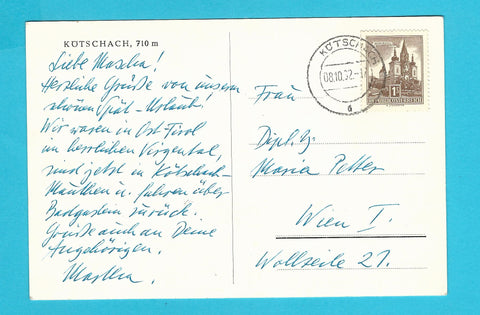 KÖTSCHACH, 710 m
Liebe Mascha!
Herzliche Grüße von unserm
schönen Spät-Urlaub.
Wir waren in Ost-Tirol
im herrlichen Virgental,
sind jetzt in Kötschach-
Mauthen u. fahren über
Badgastein zurück.
Grüße auch an Deine
Angehörigen.
KÖTSCHACH
08.10.
Frau
Dipl.
Maria
Wien I.
Wollzeile 21.